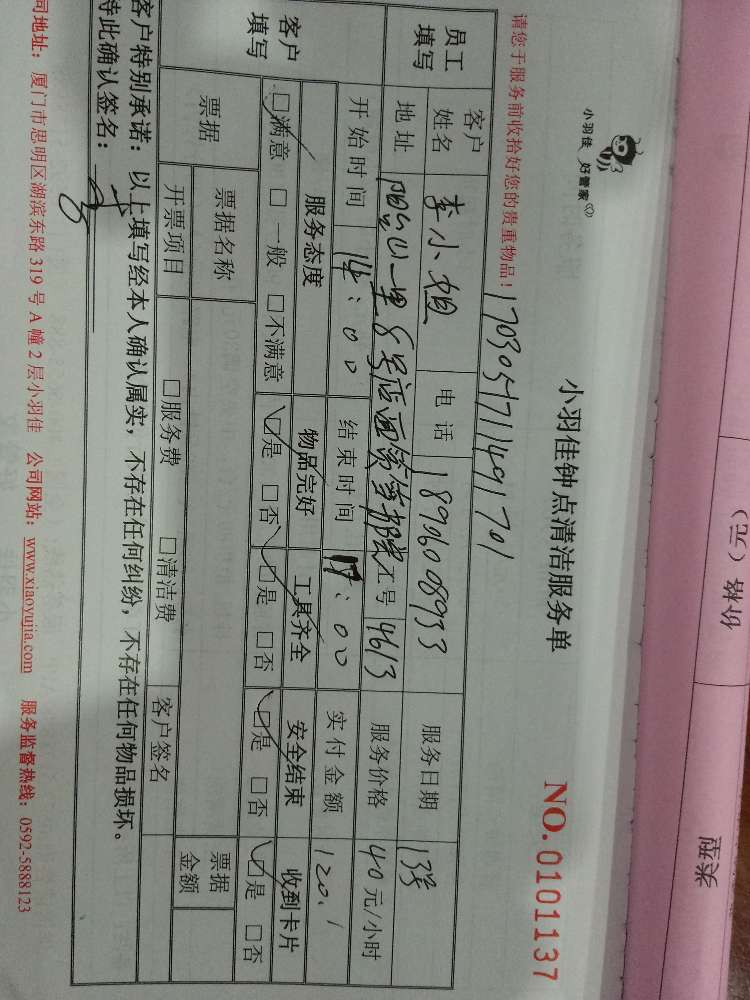 小羽佳 好管家
小羽佳钟点清洁服务单
NO.0101137
请您于服务前收拾好您的贵重物品!
员工填写 客户姓名 李小姐 电话 18996008933 服务日期 13号
地址 工号 4613 服务价格 40元/小时
开始时间 14:00 结束时间 17:00 实付金额 120.
客户填写 服务态度 物品完好 工具齐全 安全结束 收到卡片
☑满意 □一般 □不满意 ☑是 □否 ☑是 □否 ☑是 □否 ☑是 □否
票据 票据名称 票据金额
开票项目 □服务费 □清洁费 客户签名
客户特别承诺:以上填写经本人确认属实,不存在任何纠纷,不存在任何物品损坏。
特此确认签名:
司地址:厦门市思明区湖滨东路319号A幢2层小羽佳 公司网站:www.xiaoyujia.com 服务监督热线:0592-5888123
价格(元)
类型